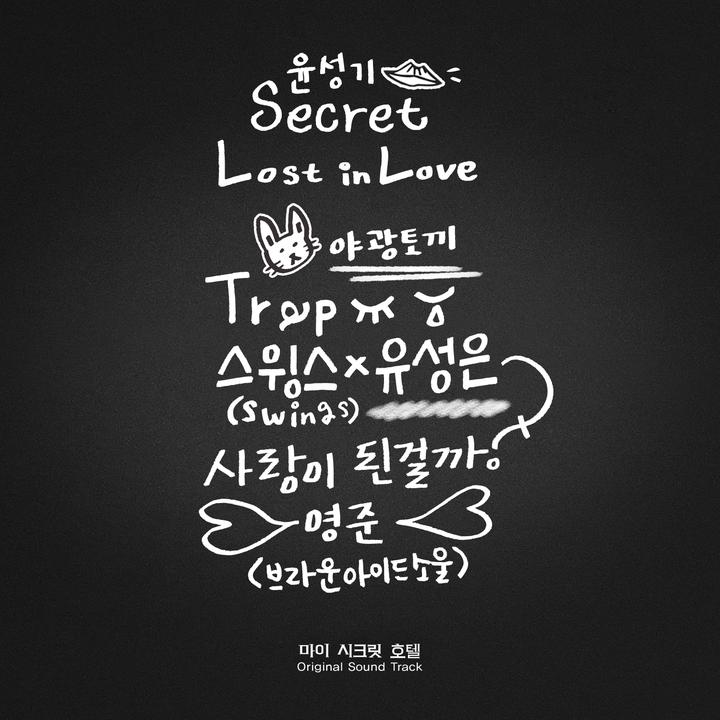 윤성기
Secret
Lost in Love
야광토끼
Trap
스윙스x유성은
(Swings)
사랑이 된걸까?
영준
(브라운아이드소울)
마이 시크릿 호텔
Original Sound Track